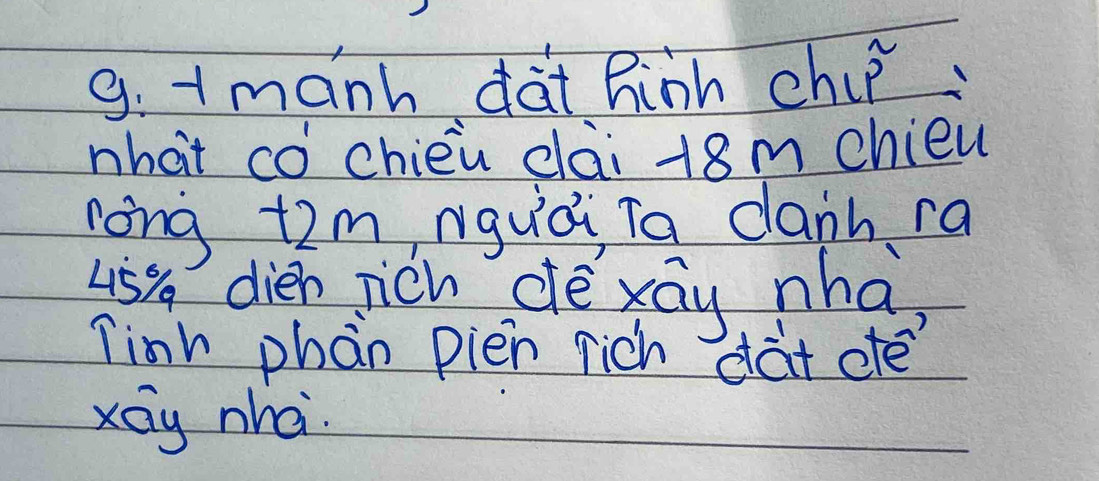 9. 1 mảnh đất hình chữ
nhật có chiều dài 18m chiều
rộng 12m, người ta dành ra
45% diện tích để xây nhà
Tính phần Diện tích đất để
xây nhà.